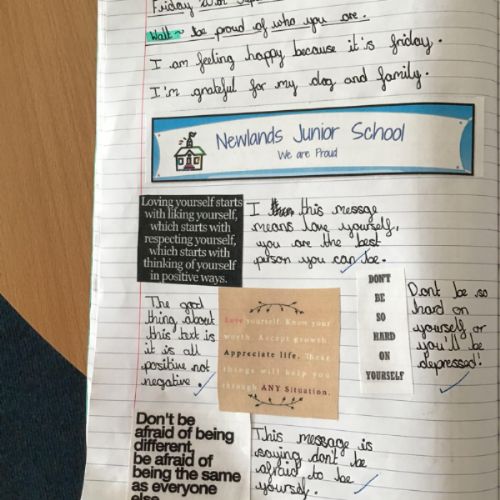 Friday 20th
Walt ~ be proud of who you are.
I am feeling happy because it's friday.
I'm grateful for my dog and family.
Newlands Junior School
We are Proud
Loving yourself starts
with liking yourself,
which starts with
respecting yourself,
which starts with
thinking of yourself
in positive ways.
I this message
means love yourself,
you are the best
person you can be.
The good
thing about
this but is
it is all
positive not
negative.
Love yourself. Know your
worth. Accept growth.
Appreciate life. These
things will help you
through ANY Situation.
DON'T
BE
SO
HARD
ON
YOURSELF
Dont be so
hard on
yourself or
you'll be
depressed!
Don't be
afraid of being
different,
be afraid of
being the same
as everyone
else
This message is
saying don't be
afraid to be
yourself.